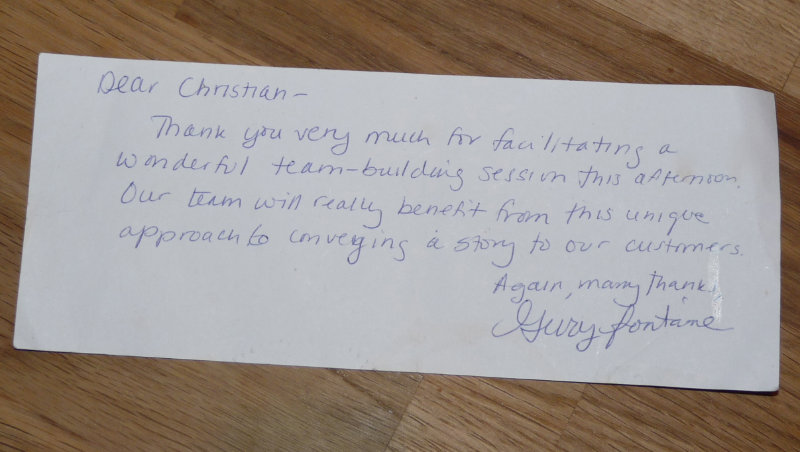 Dear Christian-
Thank you very much for facilitating a
wonderful team-building session this afternoon.
Our team will really benefit from this unique
approach to conveying a story to our customers.
Again, many thanks
Fontane